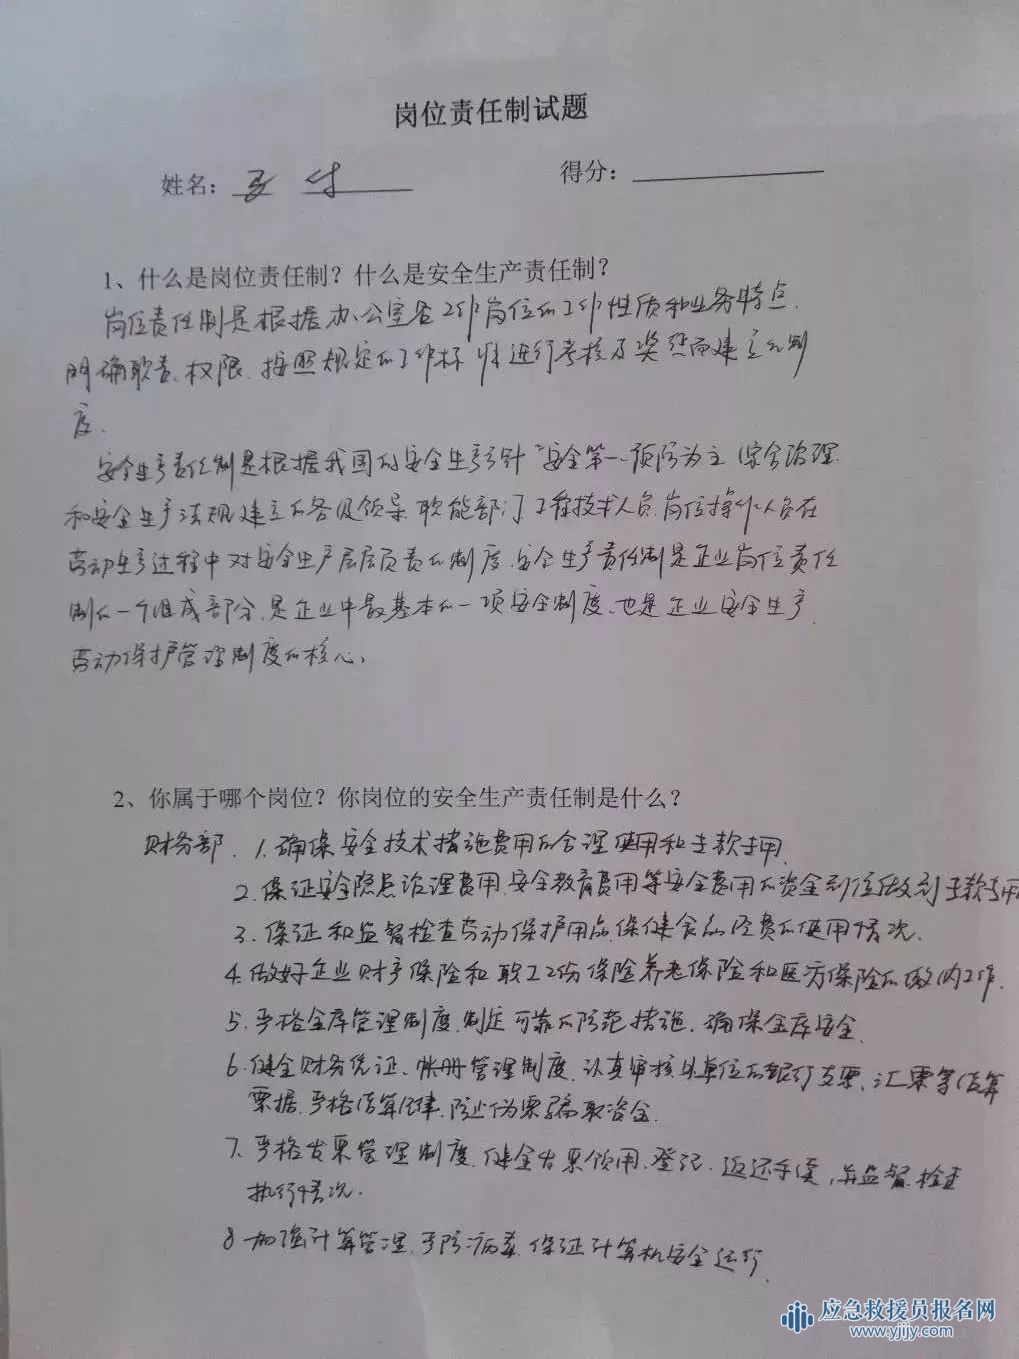 岗位责任制试题
姓名： 得分：
1、什么是岗位责任制？什么是安全生产责任制？
岗位责任制是根据办公室各工作岗位的工作性质和业务特点，
明确职责、权限，按照规定的工作标准进行考核及奖惩而建立的制
度。
安全生产责任制是根据我国的安全生产方针"安全第一、预防为主、综合治理
和安全生产法规建立的各级领导、职能部门、工程技术人员、岗位操作人员在
劳动生产过程中对安全生产层层负责的制度。安全生产责任制是企业岗位责任
制的一个组成部分，是企业中最基本的一项安全制度，也是企业安全生产、
劳动保护管理制度的核心。
2、你属于哪个岗位？你岗位的安全生产责任制是什么？
财务部、1.确保安全技术措施费用的合理使用和专款专用。
2.保证安全隐患治理费用、安全教育费用等安全费用的资金到位做到专款专用
3.保证和监督检查劳动保护用品、保健食品经费的使用情况。
4.做好企业财产保险和职工工伤保险养老保险和医疗保险的缴纳工作。
5.严格金库管理制度，制定可靠的防范措施，确保金库安全。
6.健全财务凭证、帐册管理制度，认真审核外单位的银行支票、汇票等结算
票据，严格结算纪律，防止伪票骗取资金。
7.严格发票管理制度，健全发票领用、登记、返还手续，并监督、检查
执行情况。
8.加强计算管理，预防病毒，保证计算机安全运行。
应急救援员报名网
www.yjijy.com